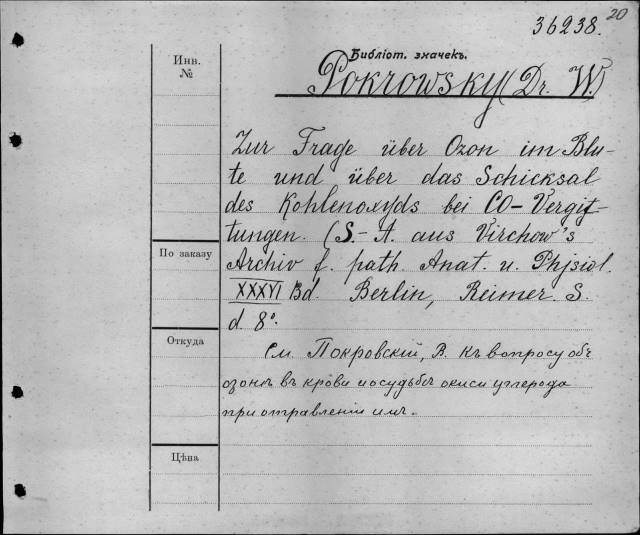 20
36238.
Инв.
№
Библіот. значекъ.
Pokrowsky (Dr. W.)
Zur Frage über Ozon im Blu-
te und über das Schicksal
des Kohlenoxyds bei CO-Vergif-
tungen. (S.-A. aus Virchow's
По заказу
Archiv f. path. Anat. u. Phjsiol.
XXXVI Bd. Berlin, Reimer S.
d. 8°.
Откуда
См. Покровскій, В. Къ вопросу объ
озонѣ въ крови и о судьбѣ окиси углерода
при отравленіи имъ.
Цѣна